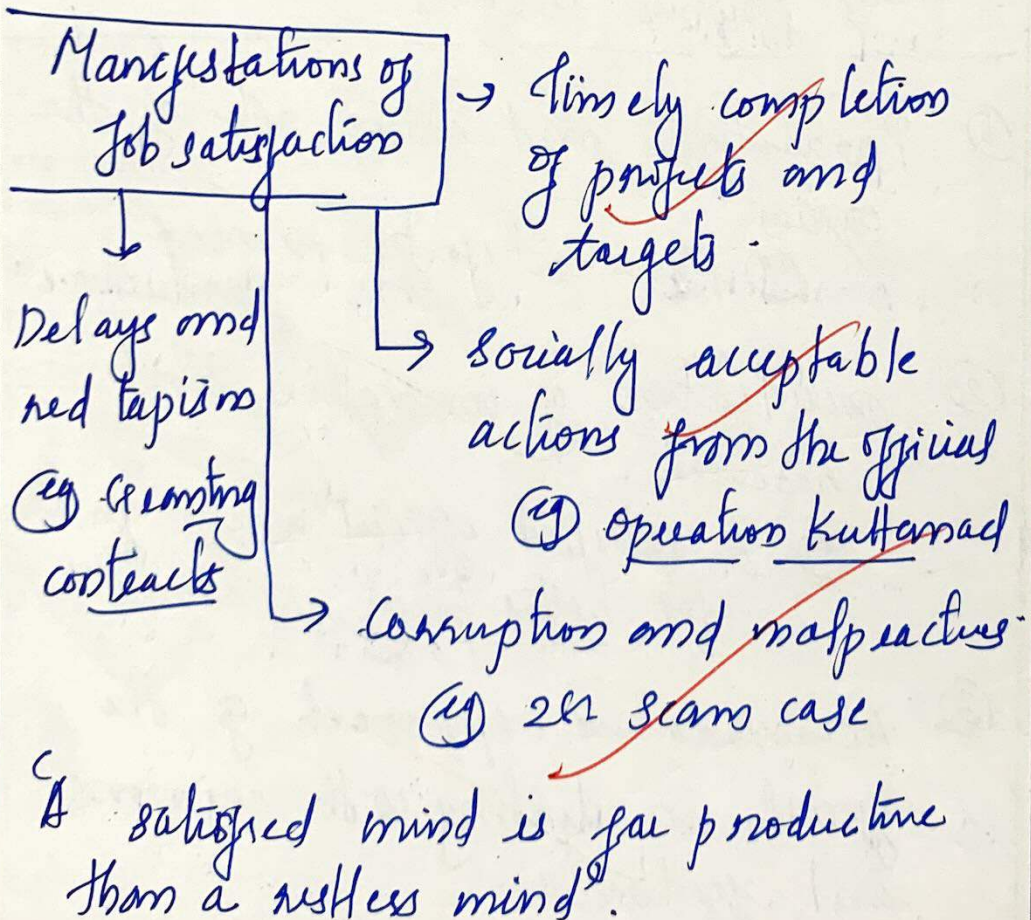 Manifestations of
Job satisfaction
→ Timely completion
of projects and
targets.
Delays and
red tapism
eg Granting
contracts
→ socially acceptable
actions from the official
eg operation Kuttanad
→ Corruption and malpractices.
eg 2G scam case
"A satisfied mind is far productive
than a restless mind".